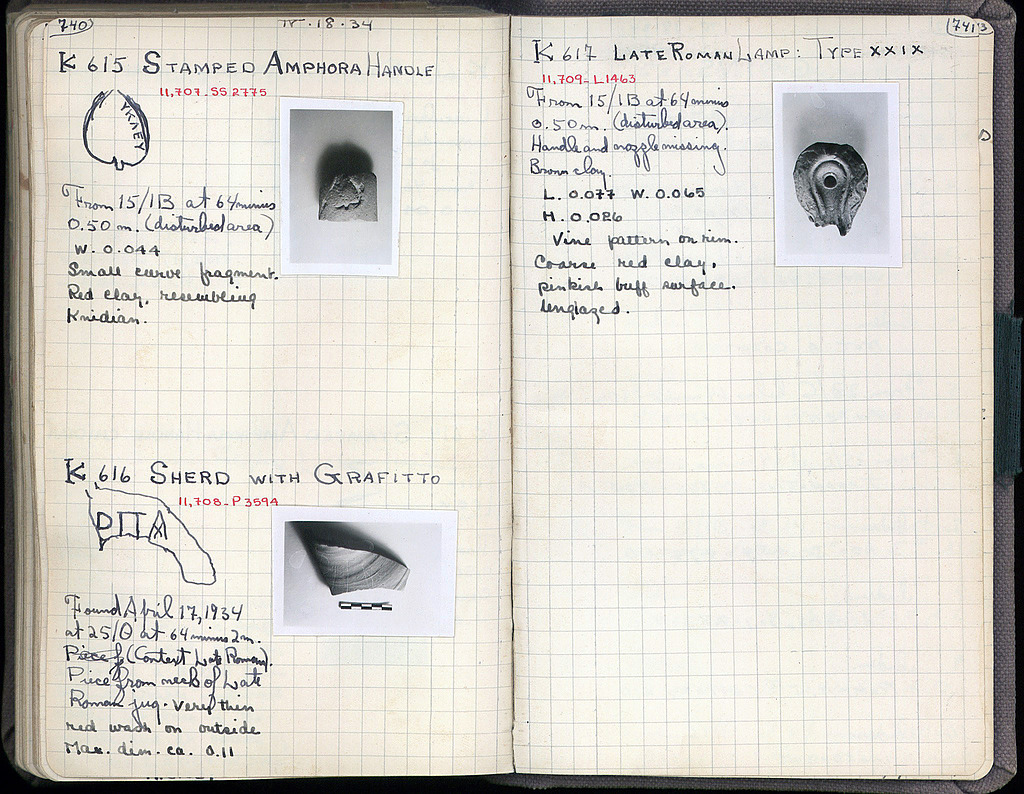 740
IV. 18. 34
K 615 STAMPED AMPHORA HANDLE
11,707 - SS 2775
ΥΚΛΕΥ
From 15/IB at 64 minus
0.50 m. (disturbed area)
W. 0.044
Small curve fragment.
Red clay, resembling
Knidian.
K 616 SHERD WITH GRAFITTO
11,708 - P 3594
Found April 17, 1934
at 25/Θ at 64 minus 2m.
(Context Late Roman).
Piece from neck of Late
Roman jug. Very thin
red wash on outside
Max. dim. ca. 0.11
741
K 617 LATE ROMAN LAMP: TYPE XXIX
11,709 - L 1463
From 15/IB at 64 minus
0.50 m. (disturbed area).
Handle and nozzle missing.
Brown clay.
L. 0.077 W. 0.065
H. 0.026
Vine pattern on rim.
Coarse red clay,
pinkish buff surface.
Unglazed.